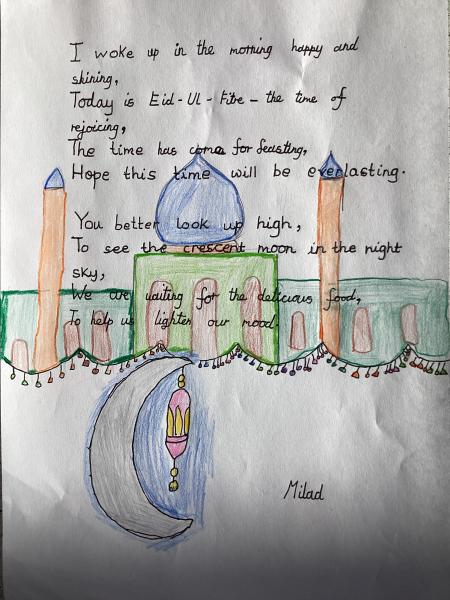 I woke up in the morning happy and
shining,
Today is Eid-Ul-Fitre - the time of
rejoicing,
The time has come for feasting,
Hope this time will be everlasting.
You better look up high,
To see the crescent moon in the night
sky,
We are waiting for the delicious food,
To help us lighten our mood.
Milad